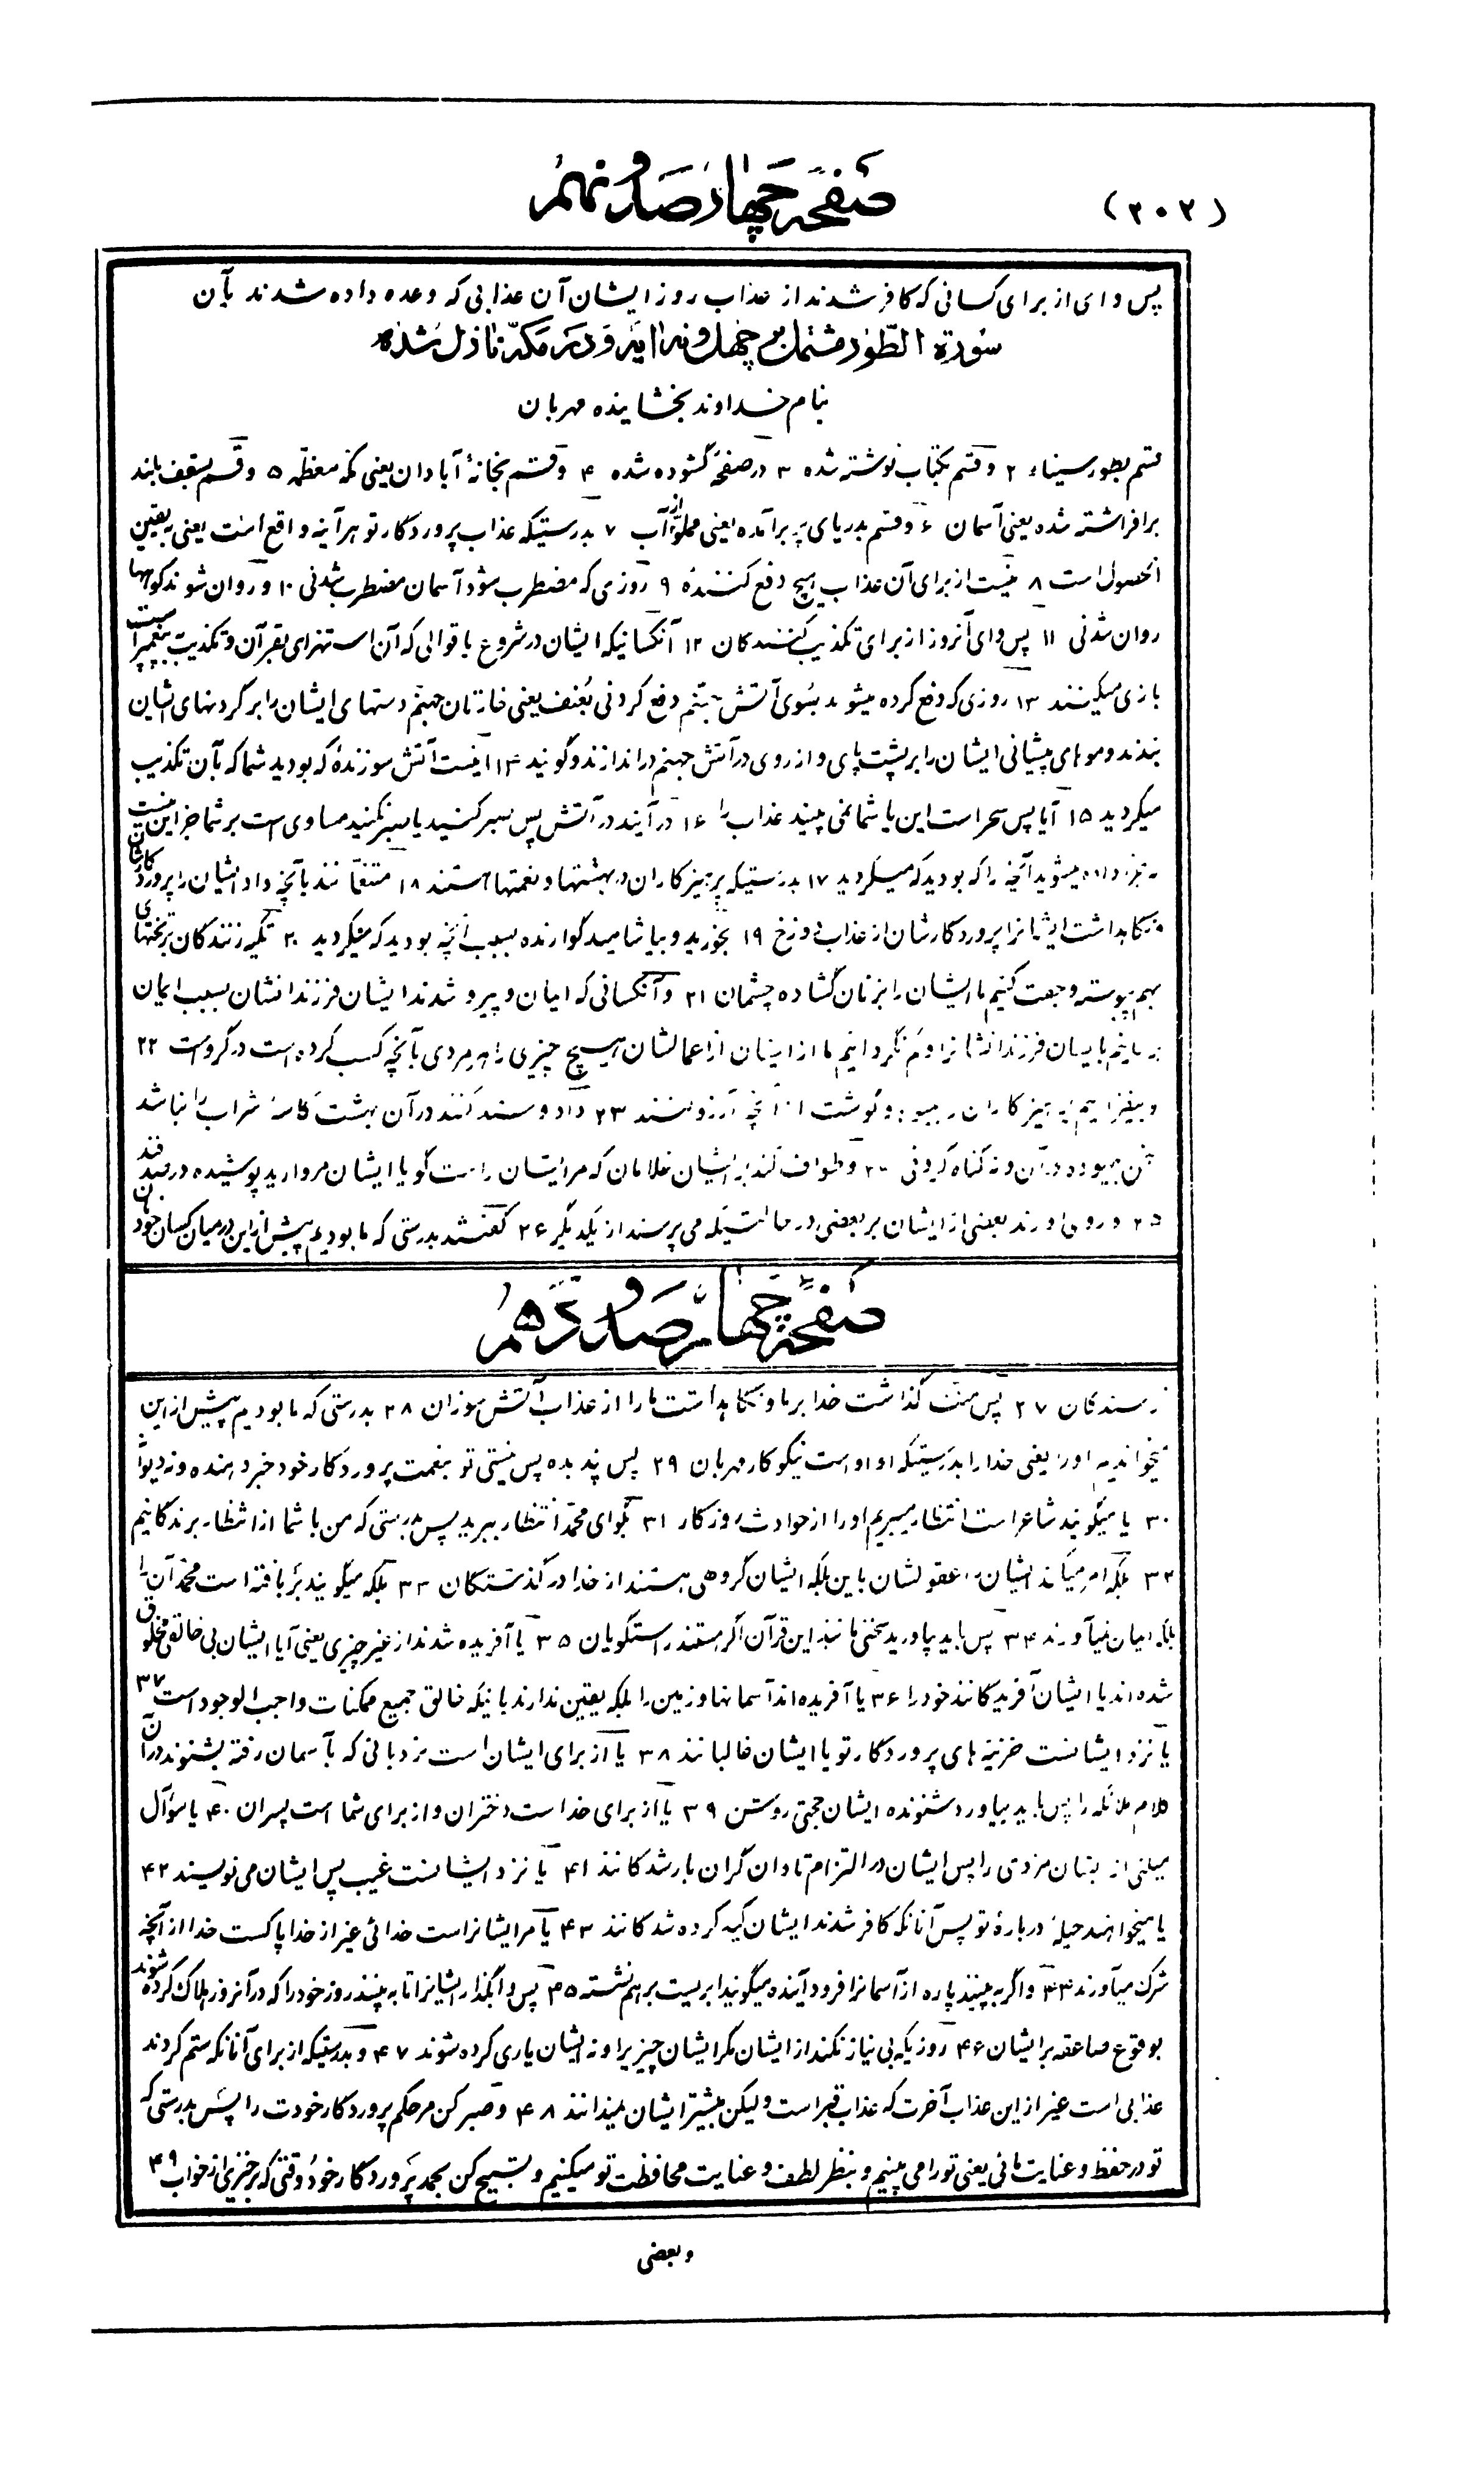 (۲۰۲)
صفحه چهار صد و نهم
پس وای از برای کسانی که کافر شدند از عذاب روز ایشان آن عذابی که وعده داده شدند بآن
سورة الطور مشتمل بر چهل و نه آیه و در مکه نازل شده
بنام خداوند بخشاینده مهربان
قسم بطور سیناء ۲ و قسم بکتاب نوشته شده ۳ در صفحهٔ گشوده شده ۴ و قسم بخانهٔ آبادان یعنی مکه معظمه ۵ و قسم بسقف بلند
برافراشته شده یعنی آسمان ۶ و قسم بدریای پر برآمده یعنی مملو از آب ۷ بدرستیکه عذاب پروردگار تو هر آینه واقع است یعنی به یقین
الحصول است ۸ نیست از برای آن عذاب هیچ دفع کنندهٔ ۹ روزی که مضطرب شود آسمان مضطرب شدنی ۱۰ و روان شوند کوهها
روان شدنی ۱۱ پس وای آنروز از برای تکذیب کنندگان ۱۲ آنکسانیکه ایشان در شروع باقوالی که آن استهزای بقرآن و تکذیب پیغمبر است
بازی میکنند ۱۳ روزی که دفع کرده میشوند بسوی آتش جهنم دفع کردنی بعنف یعنی خازنان جهنم دستهای ایشان را بر گردنهای ایشان
بندند و موهای پیشانی ایشان را بر پشت پای و از روی در آتش جهنم در اندازند و گویند ۱۴ اینست آتش سوزندهٔ که بودید شما که بآن تکذیب
میکردید ۱۵ آیا پس سحر است این یا شما نمی بینید عذاب را ۱۶ در آیند در آتش پس صبر کنید یا صبر نکنید مساوی است بر شما جز این نیست
که جزا داده میشوید آنچه را که بودید که میکردید ۱۷ بدرستیکه پرهیزکاران در بهشتها و نعمتها هستند ۱۸ متنعمانند بآنچه داد ایشان را پروردگارشان
و نگاهداشت ایشانرا پروردگارشان از عذاب دوزخ ۱۹ بخورید و بیاشامید گوارنده بسبب آنچه بودید که میکردید ۲۰ تکیه زنندگان بر تختهای
بهم پیوسته و جفت کنیم ما ایشان را بزنان گشاده چشمان ۲۱ و آنکسانی که ایمان و پیرو شدند ایشان فرزندانشان بسبب ایمان
در رسانیم بایشان فرزندانشانرا و کم نگردانیم ما از اینان از اعمالشان هیچ چیزی را هر مردی بآنچه کسب کرده است در گرو است ۲۲
و بیفزاییم پرهیزکاران را بمیوه و گوشت از آنچه آرزو کنند ۲۳ داد و ستد کنند در آن بهشت کاسهٔ شراب را نباشد
سخن بیهوده در آن و نه گناه کردنی ۲۴ و طواف کنند بر ایشان غلامان که مر ایشان راست گویا ایشان مروارید پوشیده در صدفند
۲۵ و روی آورند بعضی از ایشان بر بعضی در حالتیکه می پرسند از یکدیگر ۲۶ گفتند بدرستی که ما بودیم پیش از این در میان کسان خود
صفحه چهار صد و دهم
ترسندگان ۲۷ پس منت گذاشت خدا بر ما و نگاهداشت ما را از عذاب آتش سوزان ۲۸ بدرستی که ما بودیم پیش از این
میخواندیم اورا یعنی خدا را بدرستیکه او اوست نیکوکار مهربان ۲۹ پس پند بده پس نیستی تو بنعمت پروردگار خود خبر دهنده و نه دیوانه
۳۰ یا میگویند شاعر است انتظار میبریم او را از حوادث روزگار ۳۱ بگو ای محمد انتظار ببرید پس بدرستی که من با شما از انتظار برندگانیم
۳۲ بلکه امر میکند ایشان را عقولشان باین بلکه ایشان گروهی هستند از خدا در گذشتگان ۳۳ بلکه میگویند بر بافته است محمد آن را
بلکه ایمان نمیآورند ۳۴ پس باید بیاورید سخنی مانند این قرآن اگر هستند راستگویان ۳۵ یا آفریده شدند از غیر چیزی یعنی آیا ایشان بی خالقی مخلوق
شده اند یا ایشان آفریدگانند خود را ۳۶ یا آفریده اند آسمانها و زمین را بلکه یقین ندارند بانیکه خالق جمیع ممکنات واجب الوجود است ۳۷
یا نزد ایشانست خزینه های پروردگار تو یا ایشان غالبانند ۳۸ یا از برای ایشان است نردبانی که بآسمان رفته بشنوند در آن
کلام ملائکه را پس باید بیاورد شنونده ایشان حجتی روشن ۳۹ یا از برای خداست دختران و از برای شما است پسران ۴۰ یا سؤال
میکنی از ایشان مزدی را پس ایشان در التزام تاوان گران بار شدگانند ۴۱ یا نزد ایشانست غیب پس ایشان می نویسند ۴۲
یا میخواهند حیلهٔ دربارهٔ تو پس آنانکه کافر شدند ایشان کید کرده شدگانند ۴۳ یا مر ایشانراست خدائی غیر از خدا پاکست خدا از آنچه
شرک میآورند ۴۴ و اگر به بینند پاره از آسمانرا فرود آینده میگویند ابریست بر هم نشسته ۴۵ پس واگذار ایشانرا تا به بینند روز خود را که در آنروز هلاک کرده شوند
بوقوع صاعقه بر ایشان ۴۶ روزیکه بی نیاز نکند از ایشان مکر ایشان چیزیرا و نه ایشان یاری کرده شوند ۴۷ و بدرستیکه از برای آنانکه ستم کردند
عذابی است غیر از این عذاب آخرت که عذاب قبر است و لیکن بیشتر ایشان نمیدانند ۴۸ و صبر کن مر حکم پروردگار خودت را پس بدرستی که
تو در حفظ و عنایت مائی یعنی تو را می بینیم و بنظر لطف و عنایت محافظت تو میکنیم و تسبیح کن بحمد پروردگار خود وقتی که برخیزی از خواب ۴۹
و بعضی